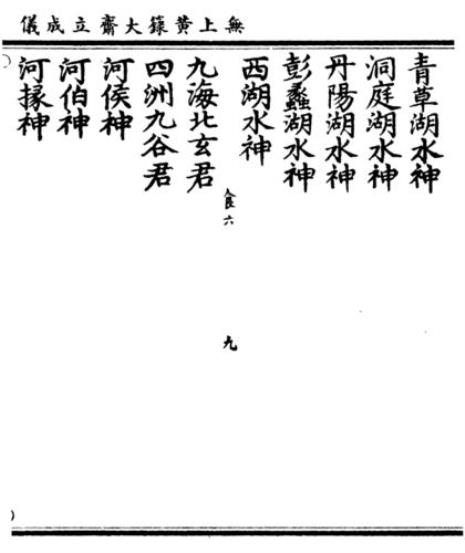 無上黃籙大齋立成儀
青草湖水神
洞庭湖水神
丹陽湖水神
彭蠡湖水神
西湖水神
食六
九
九海北玄君
四洲九谷君
河侯神
河伯神
河掾神